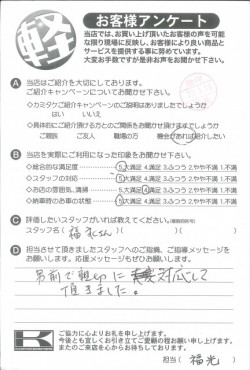 軽
お客様アンケート
当店では、お買い上げ頂いたお客様の声を可能
な限り現場に反映し、お客様により良い商品と
サービスを提供する事に努めています。
大変お手数ですが是非お声をお聞かせ下さい。
A 当店はご紹介を大切にしております。
ご紹介キャンペーンについてお聞かせ下さい。
・カミタケご紹介キャンペーンのご説明はありましたでしょうか
はい いいえ
・具体的にご紹介頂ける方とのご関係をお聞かせ頂けますでしょうか
ご親戚 ご友人 職場の方 機会があれば紹介したい
B 当店を実際にご利用になった印象をお聞かせ下さい。
・総合的な満足度 5.大満足 4.満足 3.ふつう 2.やや不満 1.不満
・スタッフの対応 5.大満足 4.満足 3.ふつう 2.やや不満 1.不満
・お店の雰囲気、清掃 5.大満足 4.満足 3.ふつう 2.やや不満 1.不満
・納車時のお車の状態 5.大満足 4.満足 3.ふつう 2.やや不満 1.不満
C 評価したいスタッフがいれば教えてください。(複数回答可)
スタッフ名( 福光さん )
D 担当させて頂きましたスタッフへのご指摘、ご指導メッセージを
お願いします。応援メッセージもぜひお願いします！
対応して
頂きました。
K
ご協力に心よりお礼を申し上げます。
今後とも宜しくお引き立てご愛顧の程お願い申し上げます。
またのご来店を心からお待ちしております。
担当( 福光 )